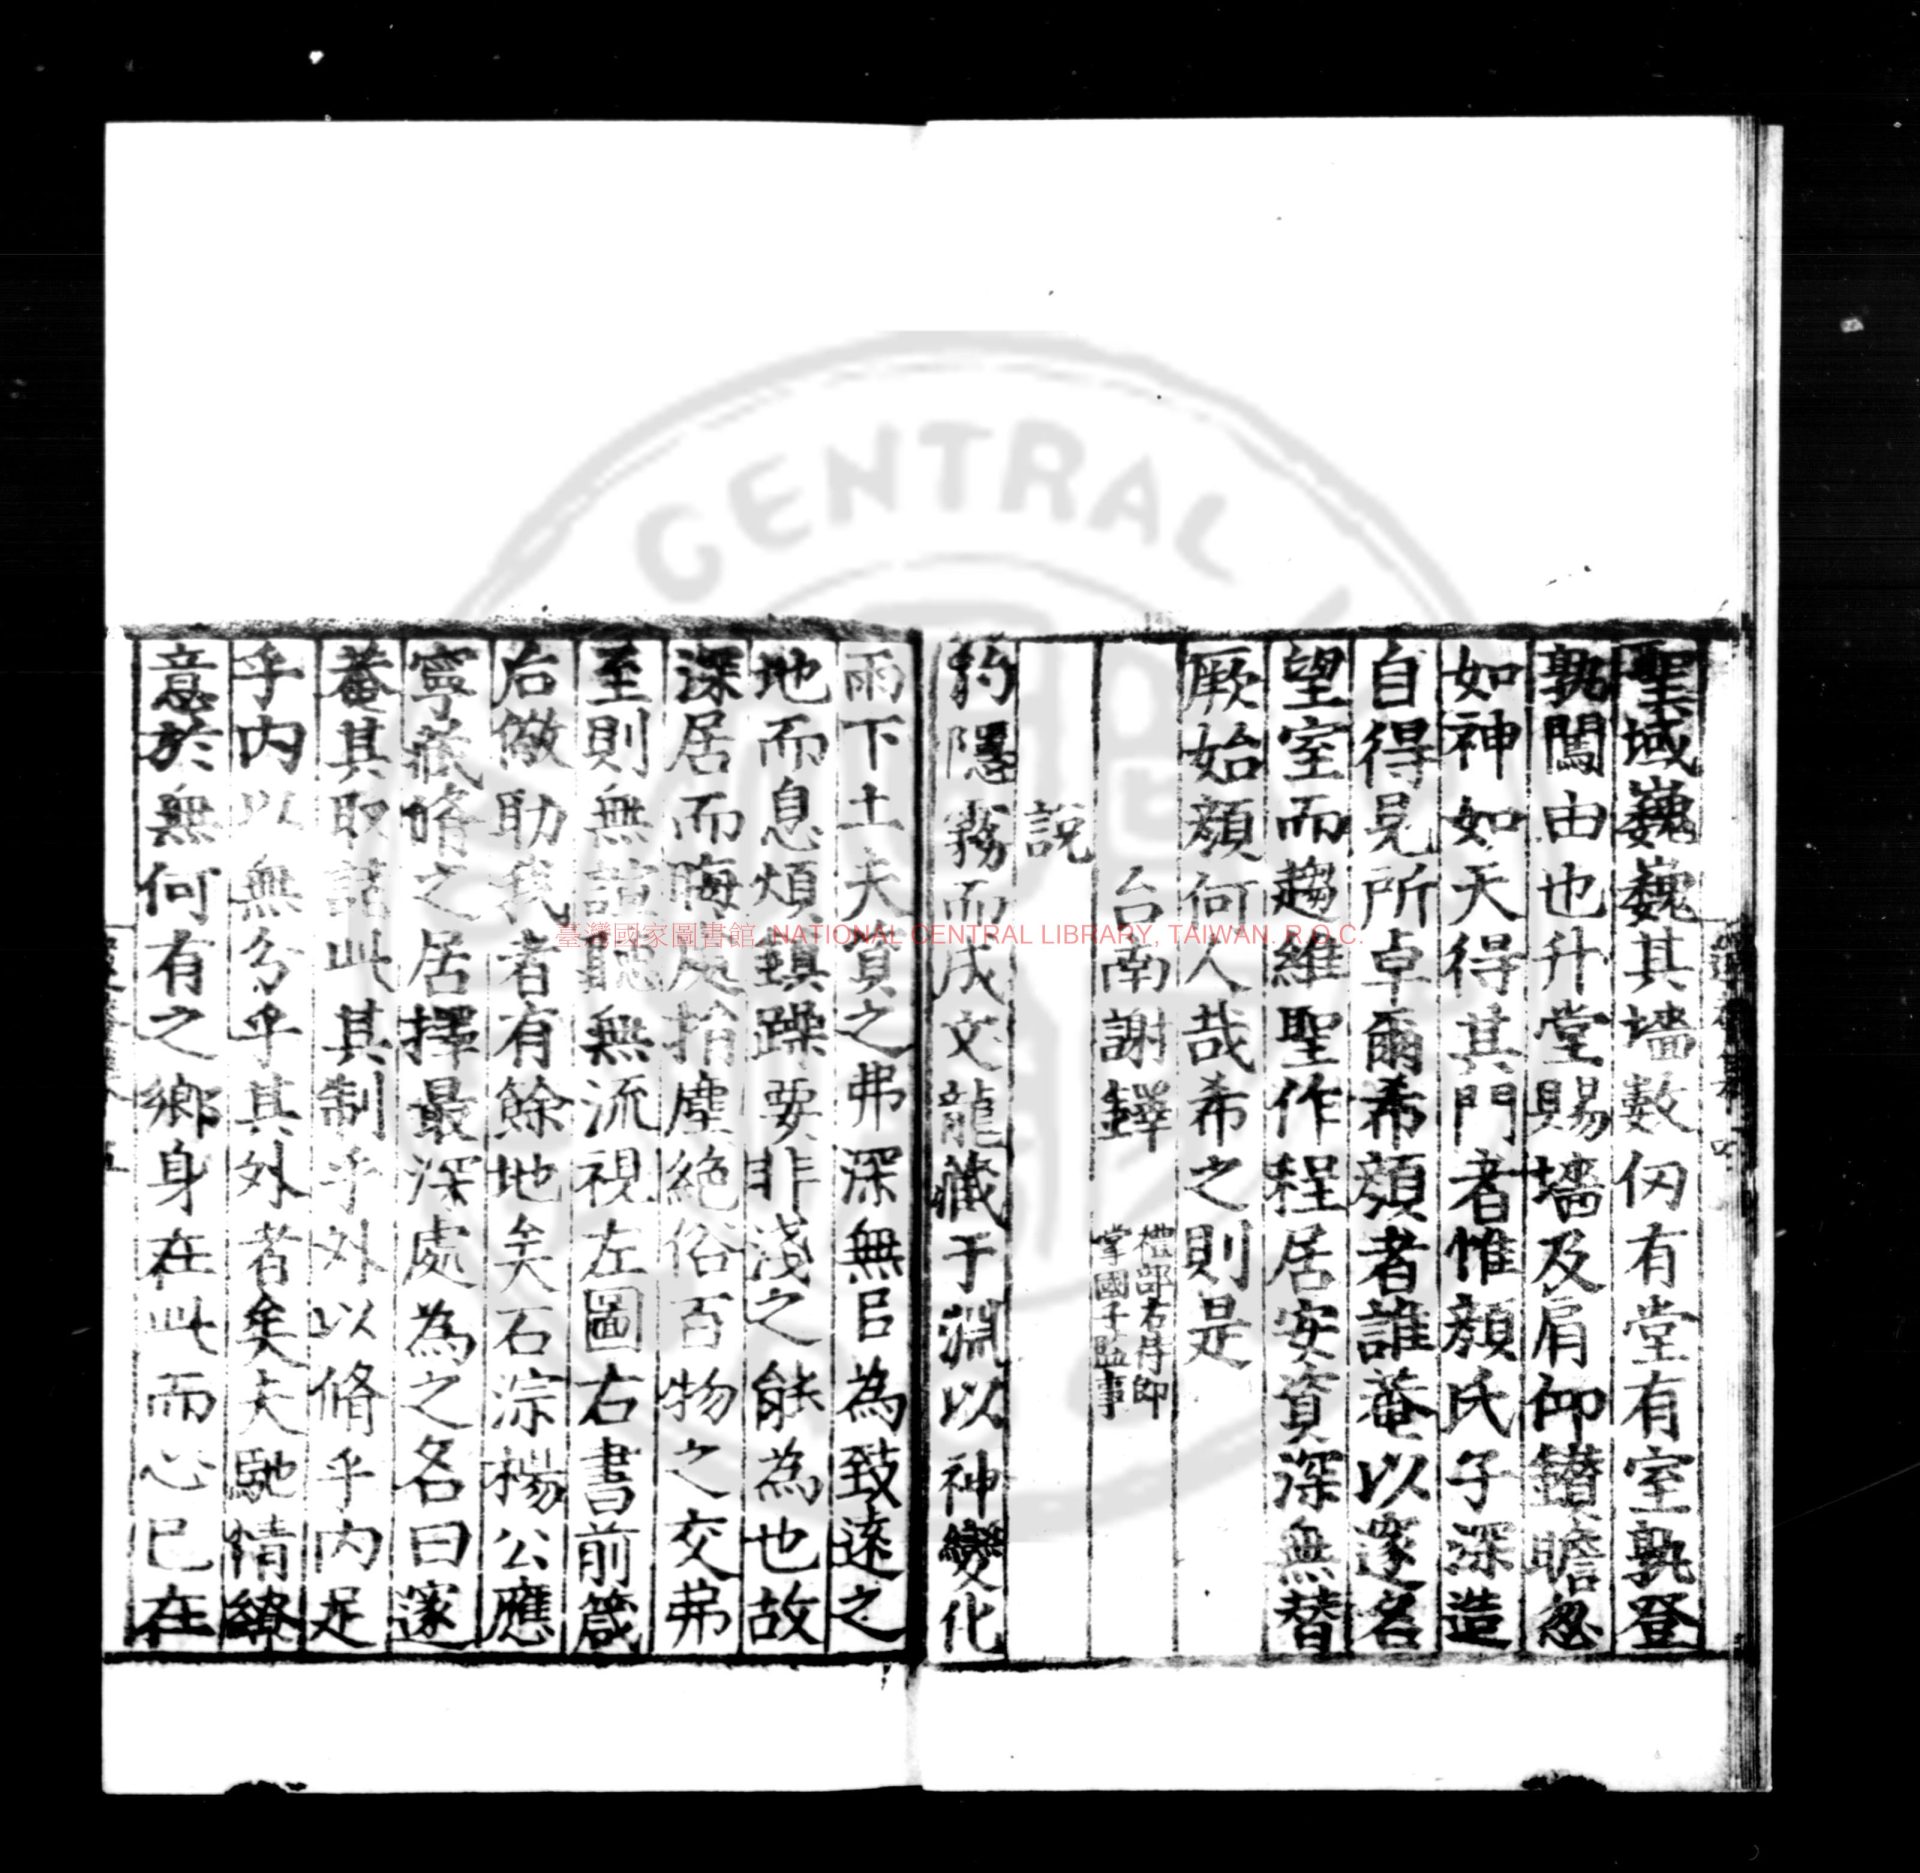 聖域巍巍其墻數仞有堂有室孰登
孰闖由也升堂賜墻及肩仰鑽瞻忽
如神如天得其門者惟顏氏子深造
自得見所卓爾希顏者誰菴以邃名
望室而趨維聖作程居安資深無替
厥始顏何人哉希之則是
台南謝鐸
禮部右侍郎
掌國子監事
說
豹隱霧而成文龍藏于淵以神變化
雨下土夫資之弗深無㠯為致遠之
地而息煩鎮躁要非淺之能為也故
深居而晦處捐塵絕俗百物之交弗
至則無讙聽無流視左圖右書前箴
后儆助我者有餘地矣石淙楊公應
寧蔵脩之居擇最深處為之名曰邃
菴其取諸此其制乎外以脩乎內足
乎內以無分乎其外者矣夫馳情繚
意於無何有之鄉身在此而心已在
臺灣國家圖書館, NATIONAL CENTRAL LIBRARY, TAIWAN. R.O.C.
CENTRAL